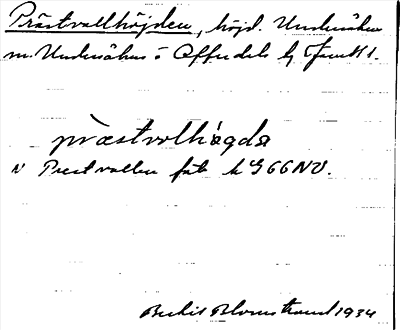 Prästvallhöjden, höjd. Undersåker
m. Undersåkers o Offerdals
pràestvolhǿgda
N Prestvallen fäb. k G66NV.
Blomstrand 1934